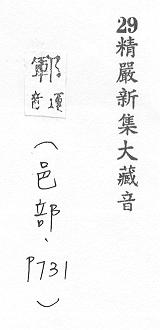 29精嚴新集大藏音
鄆運音
（邑部、P731）